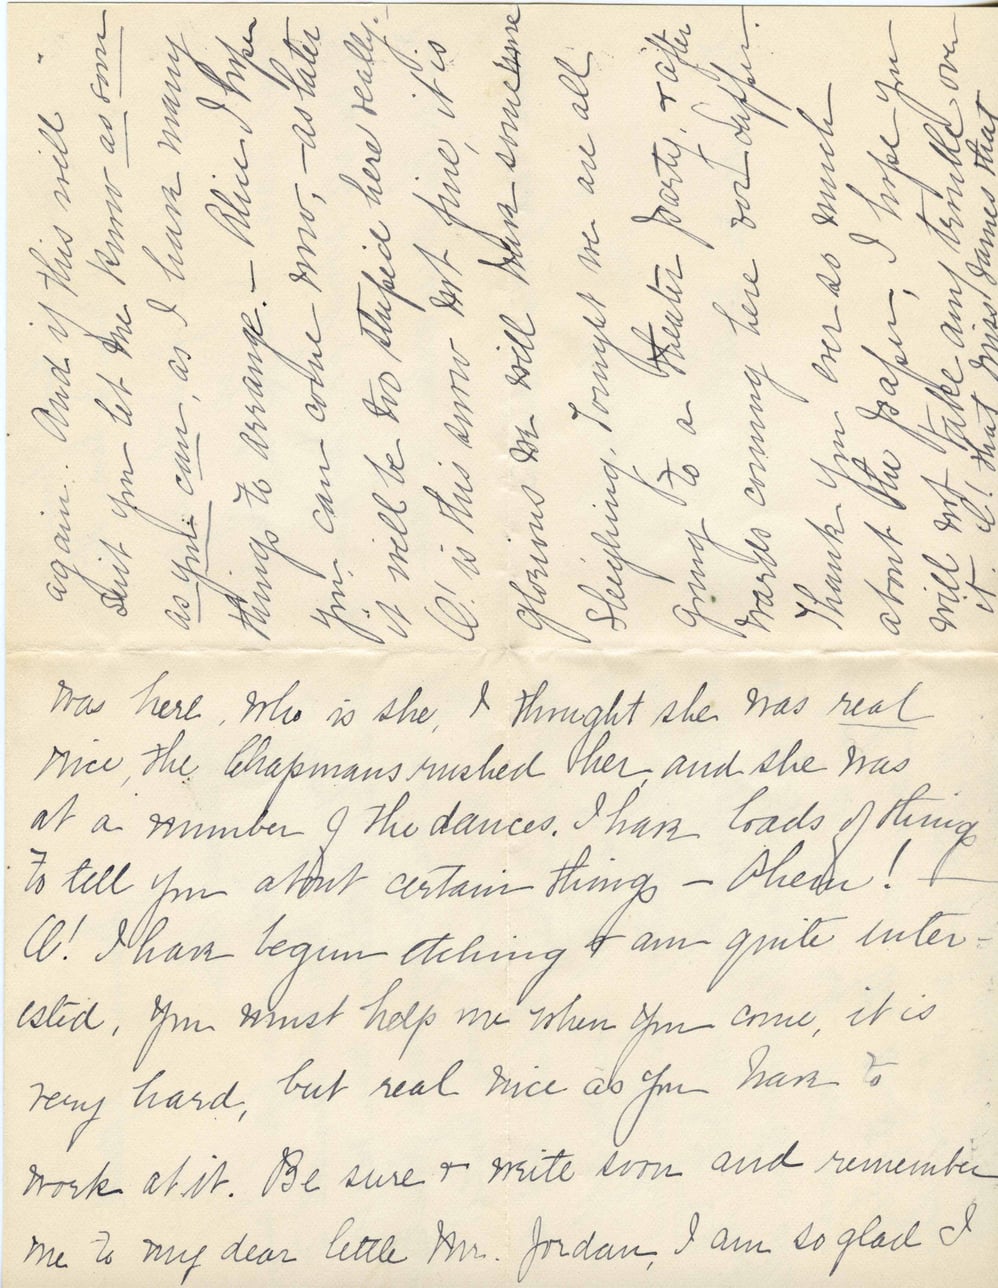 again. And if this will
suit you let me know as soon
as you can, as I have many
things to arrange. — Olive I hope
you can come now, — as later
it will be too stupid here really.
O! is this snow not fine, it is
glorious we will have some
sleighing. Tonight we are all
going to a theater party, & after
wards coming here for supper.
Thank you ever so much
about the paper, I hope you
will not take any trouble over
it. O! that Miss James that
was here, who is she, I thought she was real
nice, the Chapmans rushed her, and she was
at a number of the dances. I have loads of things
to tell you about certain things — ahem! —
O! I have begun etching & am quite inter-
ested, you must help me when you come, it is
very hard, but real nice as you have to
work at it. Be sure & write soon and remember
me to my dear little Mr. Jordan, I am so glad I